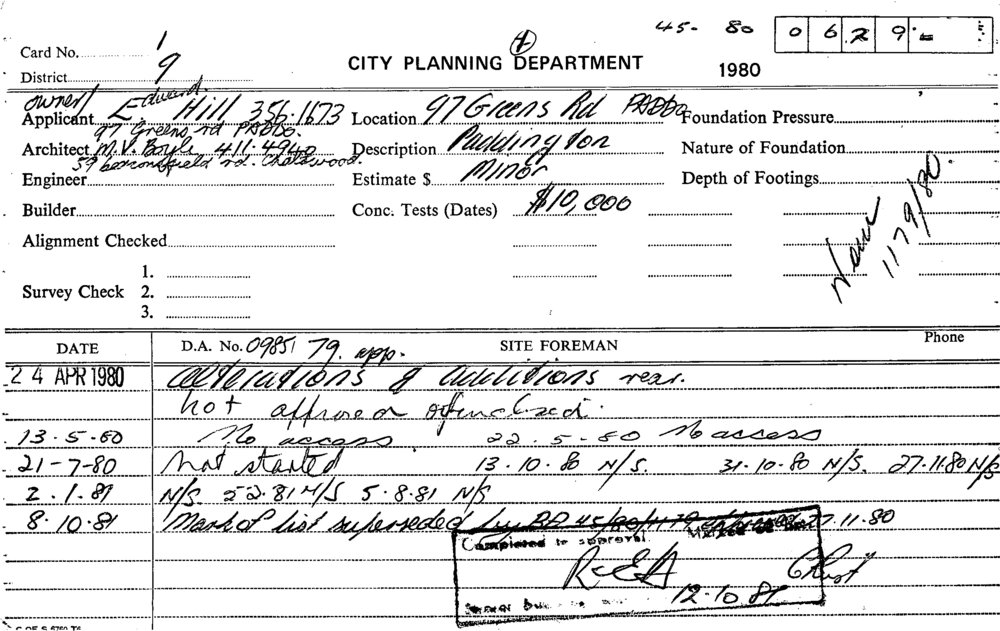 45- 80 0629
Card No. 1
District 9
CITY PLANNING DEPARTMENT
1980
owner Edward
Applicant E. Hill 356.1673
97 Greens rd PADDO.
Architect M.V. Boyle 411.4940
59 rd. Chatswood
Engineer
Builder
Alignment Checked
Survey Check 1.
2.
3.
Location 97 Greens Rd PADDO
Description Paddington
Minor
Estimate $
Conc. Tests (Dates) $10,000
Foundation Pressure
Nature of Foundation
Depth of Footings
1179/80
DATE D.A. No. 0985/79. app. SITE FOREMAN Phone
24 APR 1980 Alterations & additions rear.
not approved
13.5.80 No access 22.5.80 No access
21-7-80 Not started 13.10.80 N/S. 31.10.80 N/S. 27.11.80 N/S
2.1.81 N/S. N/S 5.8.81 N/S
8.10.81 Mark of list superseded by BA 45/80/1179 27.11.80
Completed to approval
12.10.81